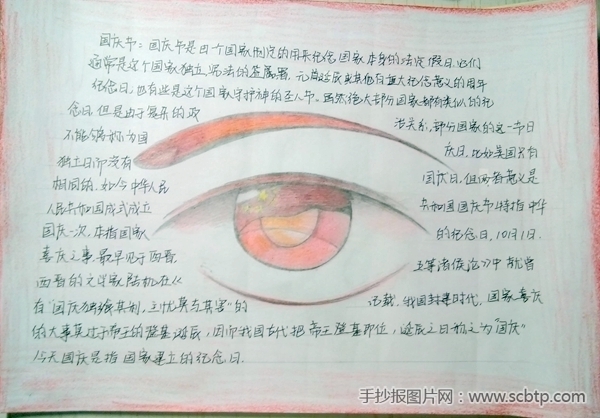 国庆节：国庆节是由一个国家制定的用来纪念国家本身的法定假日。它们
通常是这个国家独立、宪法的签署、元首诞辰或其他有重大纪念意义的周年
纪念日，也有些是这个国家守护神的圣人节。虽然绝大部分国家都有类似的纪
念日，但是由于复杂的政 治关系，部分国家的这一节日
不能够称为国 庆日，比如美国只有
独立日而没有 国庆日，但两者意义是
相同的。如今中华人民 共和国国庆节特指中华
人民共和国成立 的纪念日，10月1日。
国庆一次，本指国家
喜庆之事，最早见于西晋。 五等诸侯论》中就曾
西晋的文学家陆机在《 记载，我国封建时代，国家喜庆
有"国庆独飨其利，主忧莫与其害"的
的大事莫过于帝王的登基诞辰，因而我国古代把帝王登基即位，诞辰之日称之为"国庆"
今天国庆是指国家建立的纪念日.
手抄报图片网：www.scbtp.com